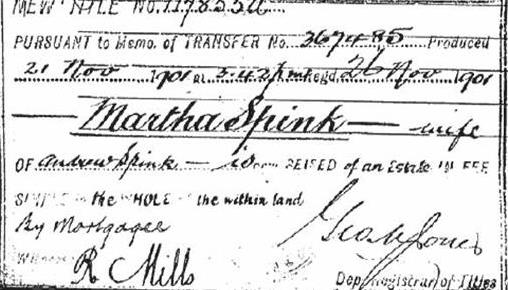 NEW TITLE No. 1178552
PURSUANT to Memo. of TRANSFER No. 367485 Produced
21 Nov 1901 at 3.42 pm Regd 26 Nov 1901
Martha Spink wife
OF Andrew Spink is SEISED of an Estate IN FEE
SIMPLE in the WHOLE of the within land
By Mortgagee
Geo W Jones
Witness R Mills
Dep Registrar of Titles